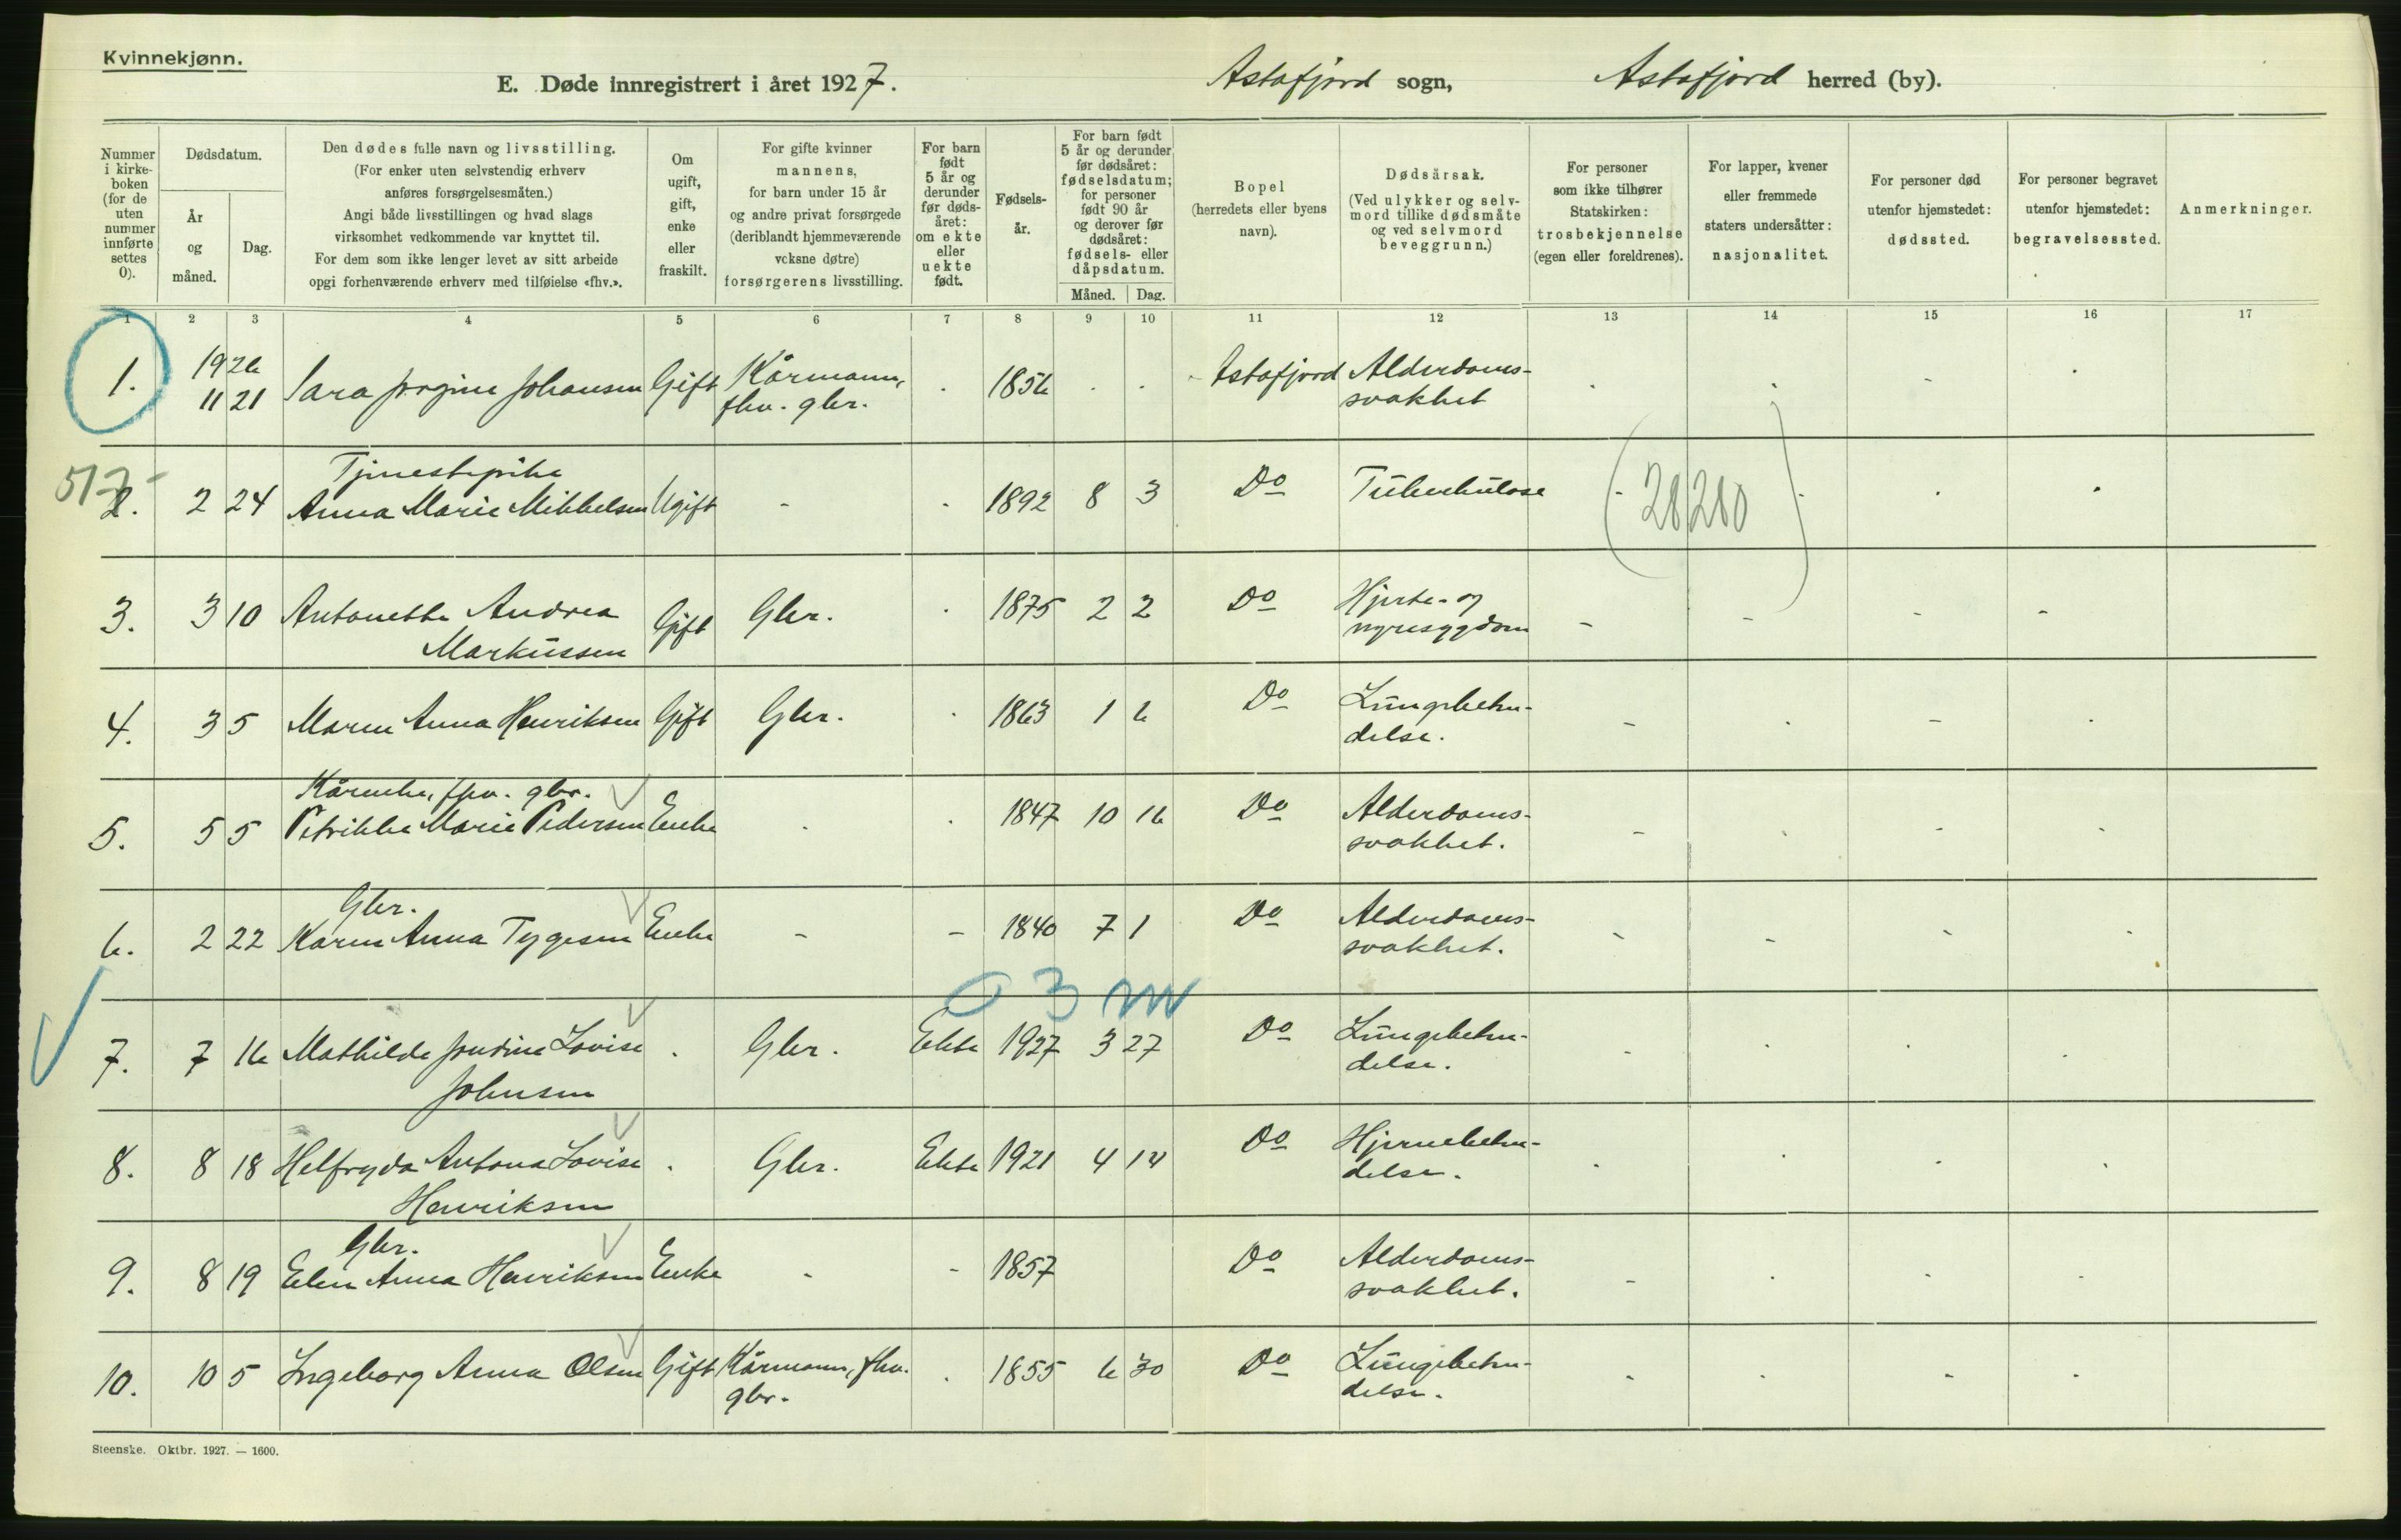 Kvinnekjønn.
E. Døde innregistrert i året 1927.
Astafjord sogn,
Astafjord herred (by).
Nummer i kirke-boken (for de uten nummer innførte settes 0).
Dødsdatum.
År og måned.
Dag.
Den dødes fulle navn og livsstilling.
(For enker uten selvstendig erhverv
anføres forsørgelsesmåten.)
Angi både livsstillingen og hvad slags
virksomhet vedkommende var knyttet til.
For dem som ikke lenger levet av sitt arbeide
opgi forhenværende erhverv med tilføielse «fhv.».
Om ugift, gift, enke eller fraskilt.
For gifte kvinner
mannens,
for barn under 15 år
og andre privat forsørgede
(deriblandt hjemmeværende
voksne døtre)
forsørgerens livsstilling.
For barn født 5 år og derunder før døds-året: om ekte eller uekte født.
Fødsels-år.
For barn født
5 år og derunder
før dødsåret:
fødselsdatum;
for personer
født 90 år
og derover før
dødsåret:
fødsels- eller
dåpsdatum.
Måned. Dag.
Bopel
(herredets eller byens
navn).
Dødsårsak.
(Ved ulykker og selv-
mord tillike dødsmåte
og ved selvmord
beveggrunn.)
For personer
som ikke tilhører
Statskirken:
trosbekjennelse
(egen eller foreldrenes).
For lapper, kvener
eller fremmede
staters undersåtter:
nasjonalitet.
For personer død
utenfor hjemstedet:
dødssted.
For personer begravet
utenfor hjemstedet:
begravelsessted.
Anmerkninger.
1 2 3 4 5 6 7 8 9 10 11 12 13 14 15 16 17
1926
1. 11 21 Sara Jørgine Johansen Gift Kårmann, . 1856 . . Astafjord Alderdoms-
fhv. gbr. svakhet
517- Tjenestepike
2. 2 24 Anna Marie Mikkelsen Ugift - . 1892 8 3 Do Tuberkulose (28280)
3. 3 10 Antonette Andrea Gift Gbr. . 1875 2 2 Do Hjerte- og
Markussen nyresygdom
4. 3 5 Maren Anna Henriksen Gift Gbr. . 1863 1 6 Do Lungebeten-
delse.
Kårenke, fhv. gbr.
5. 5 5 Petrikke Marie Pedersen Enke . . 1847 10 16 Do Alderdoms-
svakhet.
Gbr.
6. 2 22 Karen Anna Tygesen Enke - - 1840 7 1 Do Alderdoms-
svakhet.
0 3 m
7. 7 16 Mathilde Jondine Lovise . Gbr. Ekte 1927 3 27 Do Lungebeten-
Johnsen delse.
8. 8 18 Helfryda Antona Lovise . Gbr. Ekte 1921 4 14 Do Hjernebeten-
Henriksen delse.
Gbr.
9. 8 19 Elen Anna Henriksen Enke - - 1857 Do Alderdoms-
svakhet.
10. 10 5 Ingeborg Anna Olsen Gift Kårmann, fhv. . 1855 6 30 Do Lungebeten-
gbr. delse.
Steenske. Oktbr. 1927. — 1600.